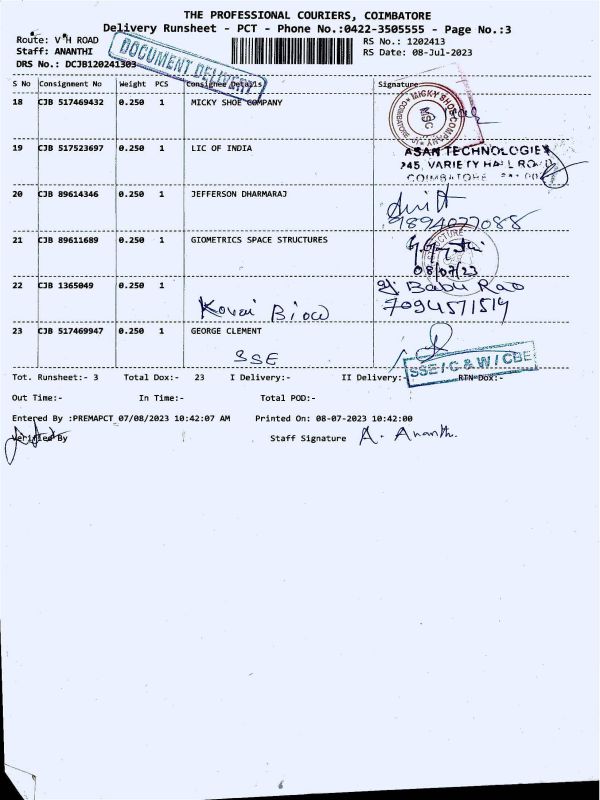 THE PROFESSIONAL COURIERS, COIMBATORE
Delivery Runsheet - PCT - Phone No.:0422-3505555 - Page No.:3
Route: V H ROAD
RS No.: 1202413
Staff: ANANTHI
RS Date: 08-Jul-2023
DRS No.: DCJB120241303
DOCUMENT DELIVERY
S No Consignment No Weight PCS Consignee Details Signature
18 CJB 517469432 0.250 1 MICKY SHOE COMPANY
MICKY SHOE COMPANY
MSC
19 CJB 517523697 0.250 1 LIC OF INDIA
ASAN TECHNOLOGIES
745, VARIETY HALL ROAD
COIMBATORE
20 CJB 89614346 0.250 1 JEFFERSON DHARMARAJ
9894077088
21 CJB 89611689 0.250 1 GIOMETRICS SPACE STRUCTURES
08/07/23
22 CJB 1365049 0.250 1
Kovai
Babu Rao
7094571514
23 CJB 517469947 0.250 1 GEORGE CLEMENT
SSE
SSE / C & W / CBE
Tot. Runsheet:- 3 Total Dox:- 23 I Delivery:- II Delivery:- RTN Dox:-
Out Time:- In Time:- Total POD:-
Entered By :PREMAPCT 07/08/2023 10:42:07 AM Printed On: 08-07-2023 10:42:00
Verified By Staff Signature A. Ananthi.